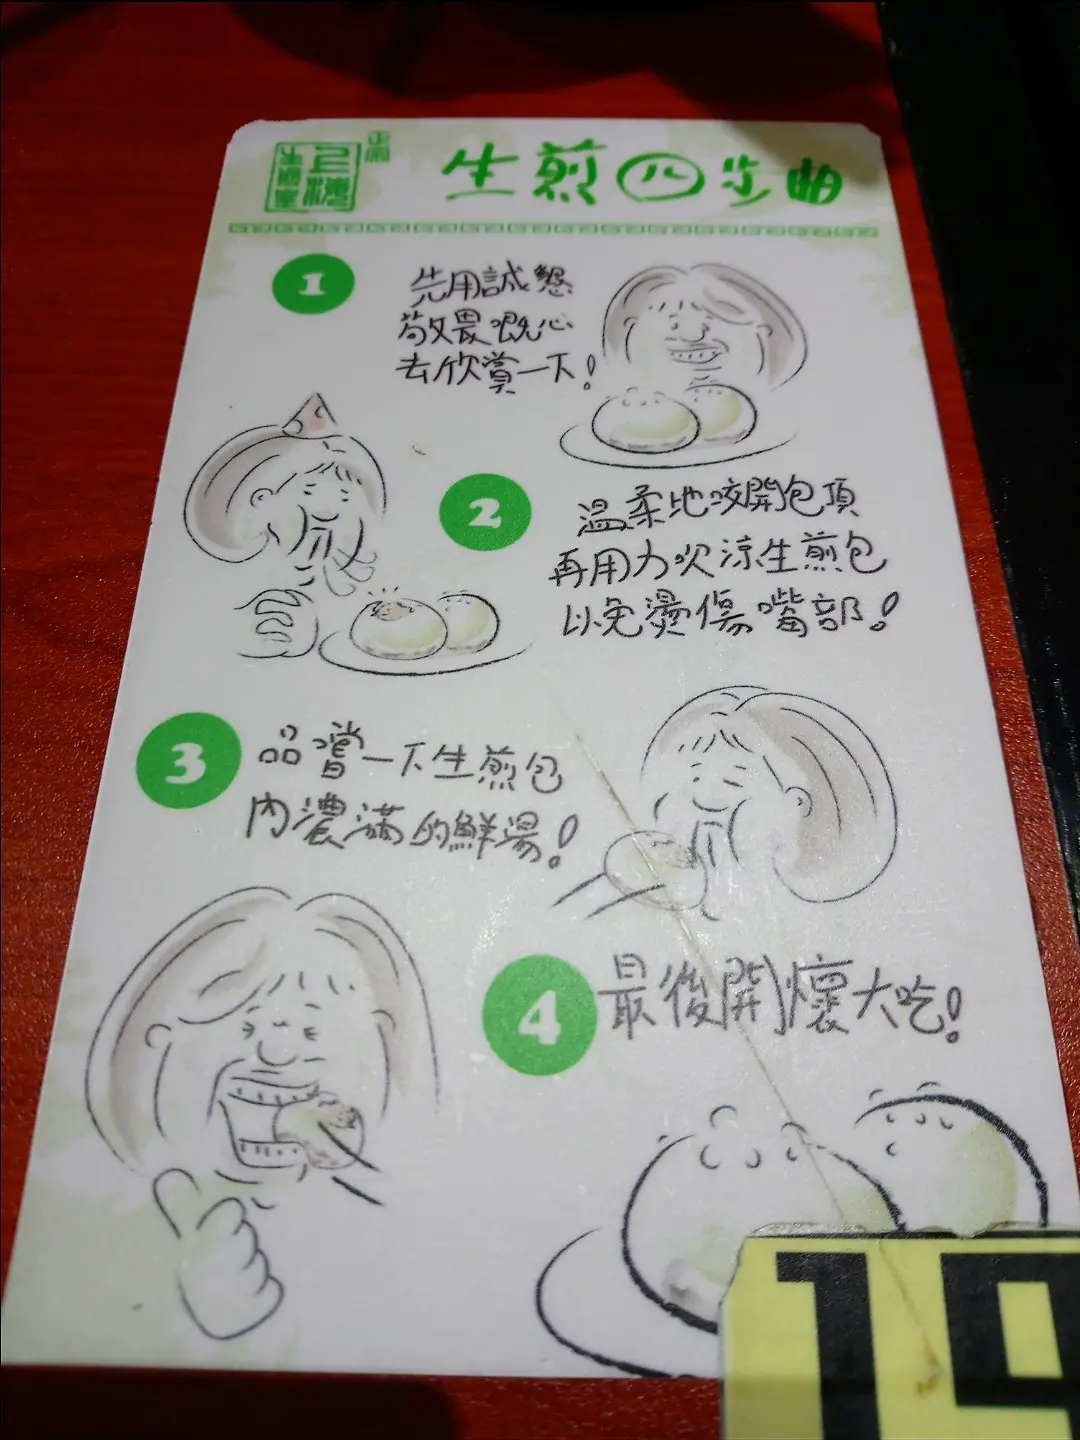 生煎四步曲
1
先用誠懇
敬畏嘅心
去欣賞一下！
2
溫柔地咬開包頂
再用力吹涼生煎包
以免燙傷嘴部！
3
品嚐一下生煎包
內濃滿的鮮湯！
4
最後開懷大吃！
19